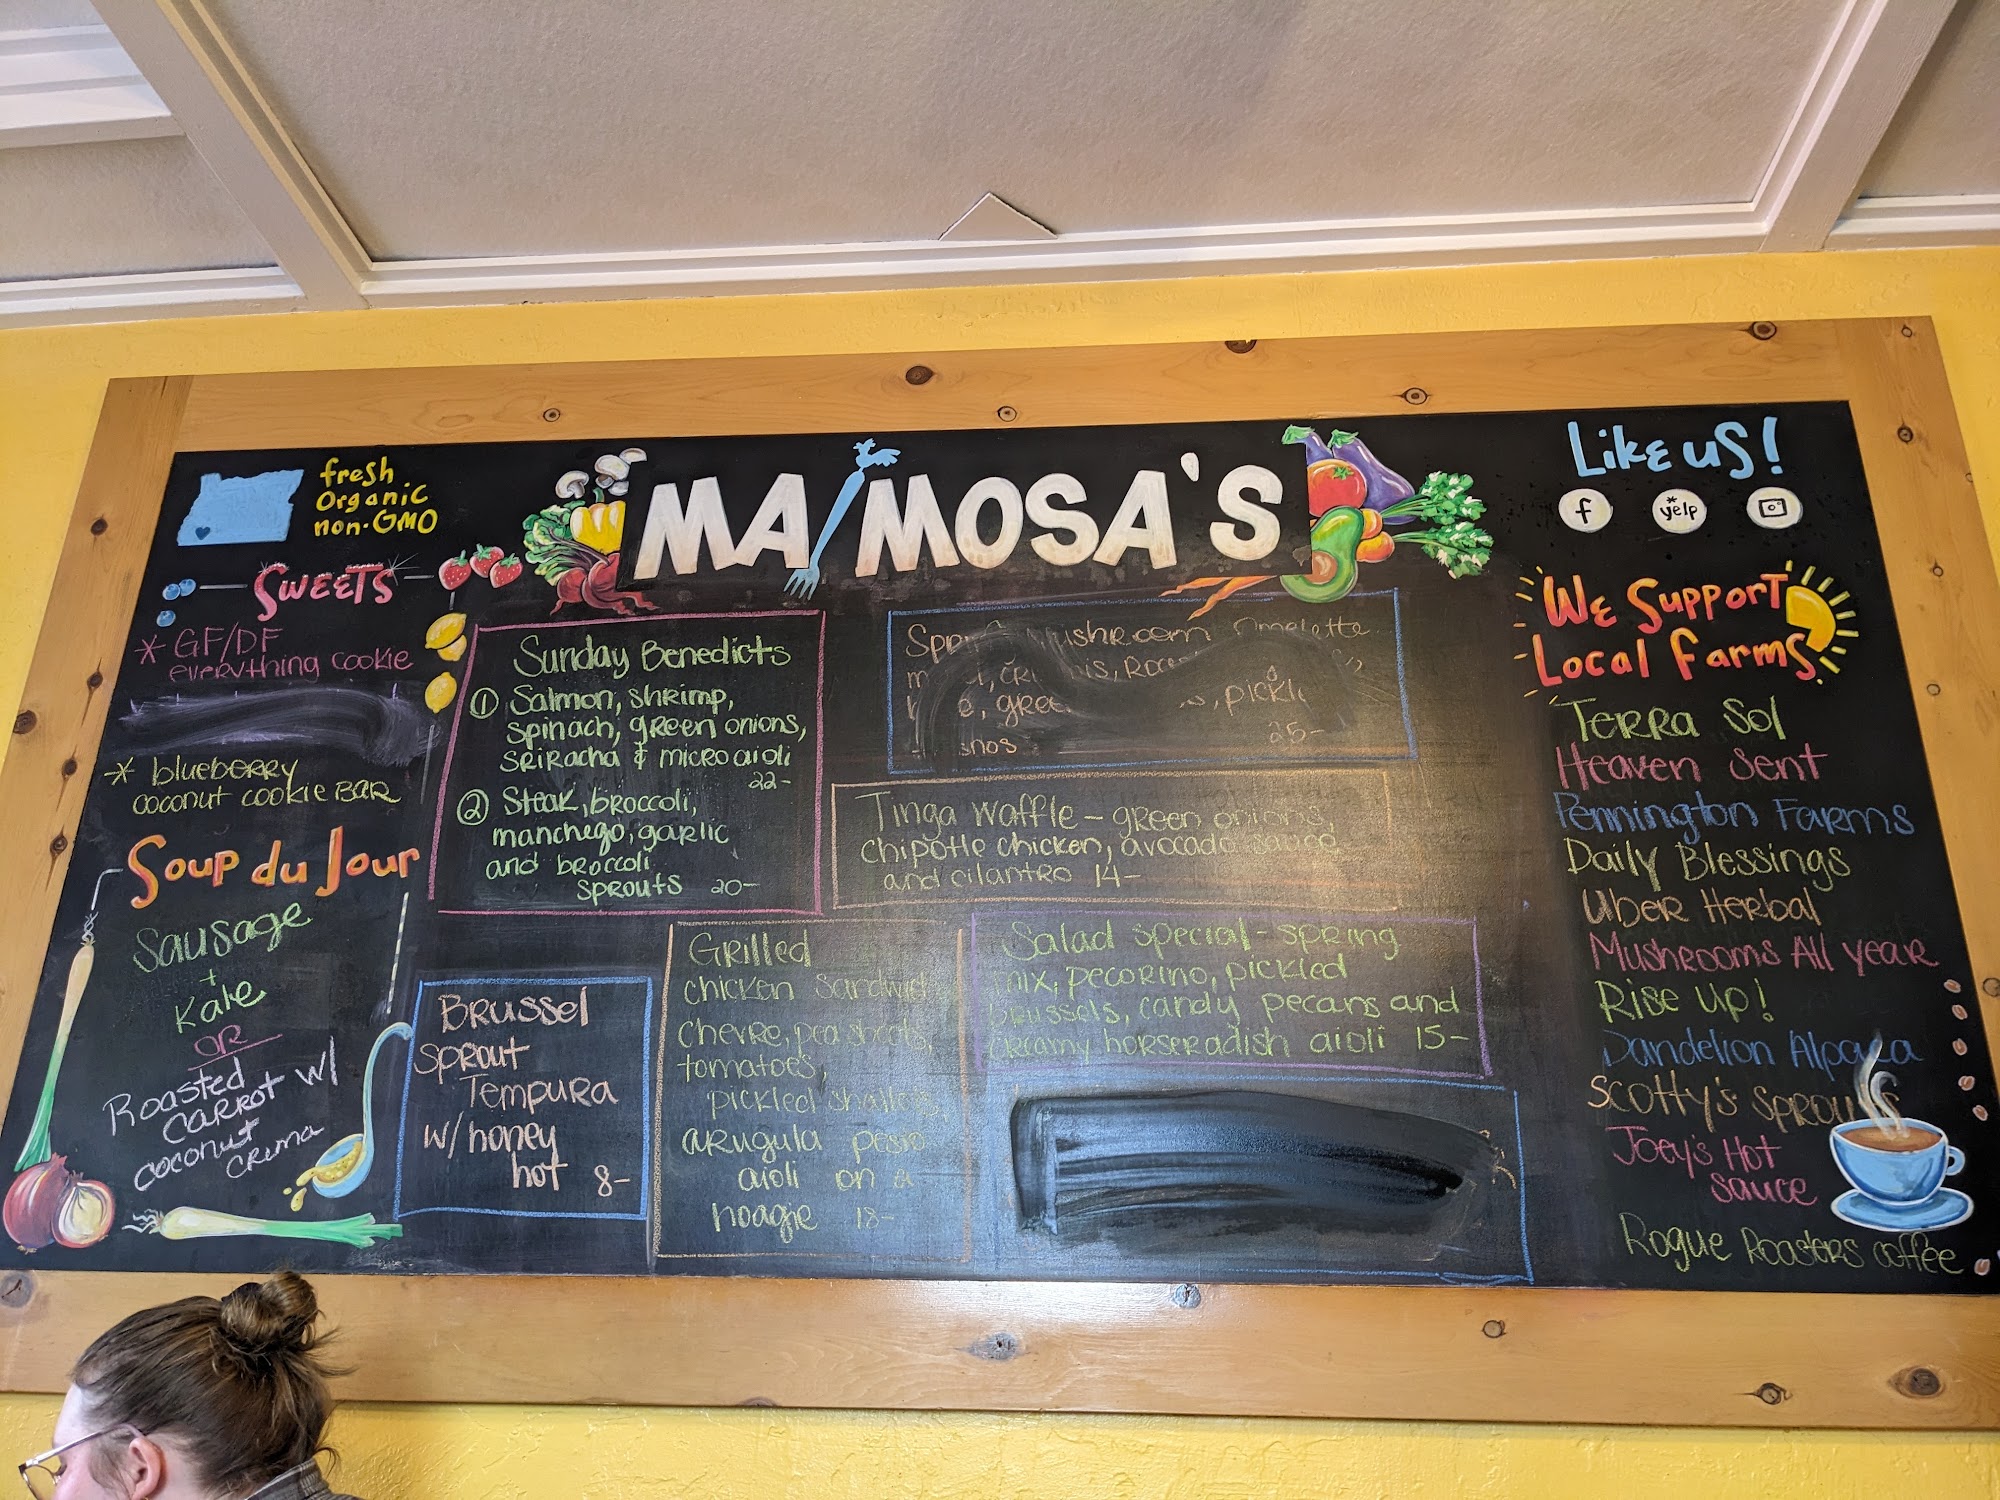 fresh
Organic
non-GMO
MAIMOSA'S
Like us!
f
yelp
SWEETS
* GF/DF
everything cookie
* blueberry
coconut cookie BAR
Soup du Jour
Sausage
+
Kale
OR
Roasted
carrot w/
coconut
crema
Sunday Benedicts
① Salmon, shrimp,
spinach, green onions,
sriracha & micro aioli
22-
② Steak, broccoli,
manchego, garlic
and broccoli
sprouts 20-
mushroom omelette
pickl
25-
Tinga Waffle - green onions,
chipotle chicken, avocado sauce
and cilantro 14-
Brussel
Sprout
Tempura
w/ honey
hot 8-
Grilled
chicken sandwich
chevre, pea shoots,
tomatoes,
pickled shallots,
arugula pesto
aioli on a
hoagie 18-
Salad special - spring
mix, pecorino, pickled
brussels, candy pecans and
creamy horseradish aioli 15-
We Support
Local Farms
Terra Sol
Heaven Sent
Pennington Farms
Daily Blessings
Uber Herbal
Mushrooms All Year
Rise Up!
Dandelion Alpaca
Scotty's Sprouts
Joey's Hot
Sauce
Rogue Roasters coffee